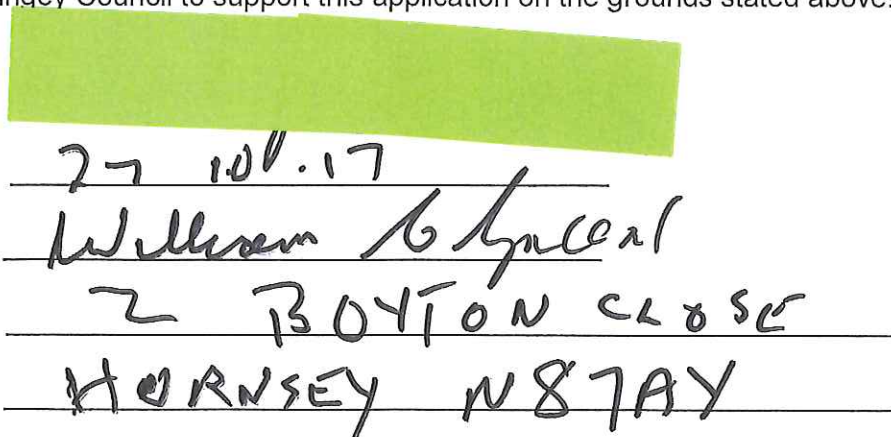 ingey Council to support this application on the grounds stated above.
27 10.17
William
2 BOYTON CLOSE
HORNSEY N8 7AY